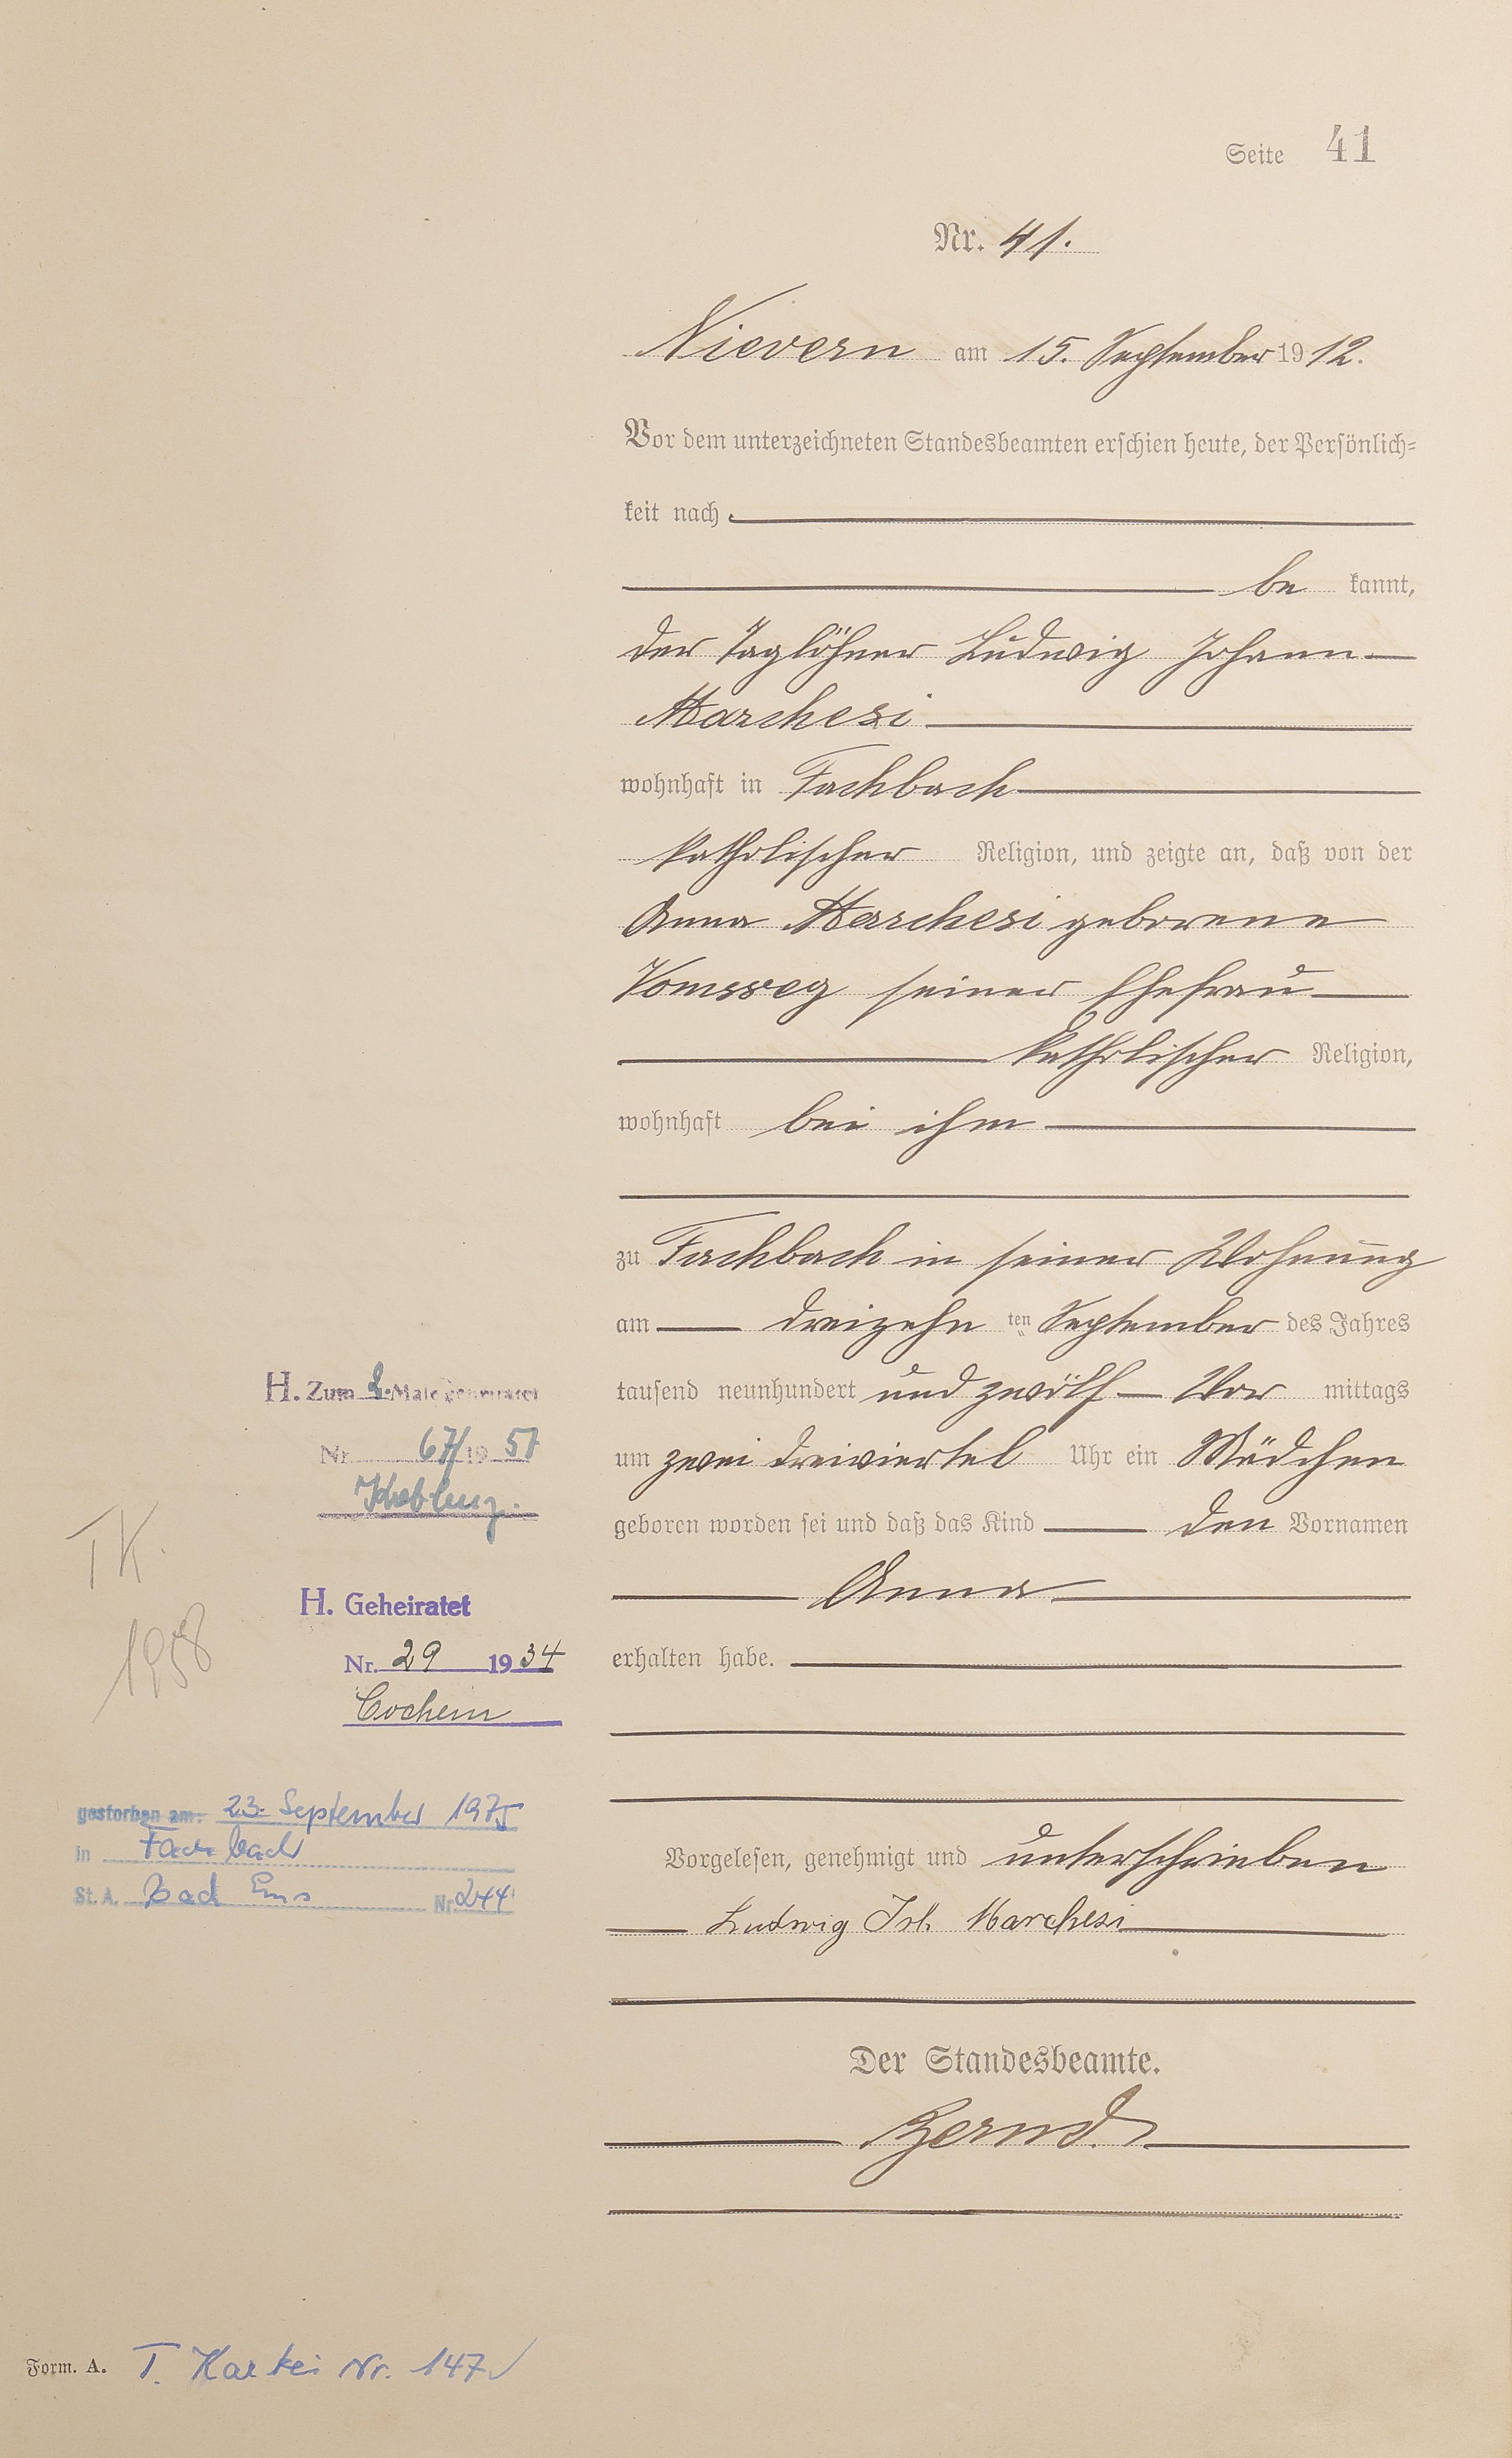 Seite 41
Nr. 41.
Nievern am 15. September 1912.
Vor dem unterzeichneten Standesbeamten erschien heute, der Persönlich=
keit nach
be kannt,
der Taglöhner Ludwig Johann
Marchesi
wohnhaft in Fachbach
katholischer Religion, und zeigte an, daß von der
Anna Marchesi geborene
Vomsweg seiner Ehefrau
katholischer Religion,
wohnhaft bei ihm
zu Fachbach in seiner Wohnung
am dreizehn ten September des Jahres
tausend neunhundert und zwölf Vor mittags
um zwei dreiviertel Uhr ein Mädchen
geboren worden sei und daß das Kind den Vornamen
Anna
erhalten habe.
Vorgelesen, genehmigt und unterschrieben
Ludwig Joh. Marchesi
Der Standesbeamte.
H. Zum 2. Male geheiratet
Nr. 67/1957
Koblenz.
TK.
1958
H. Geheiratet
Nr. 29 1934
Cochem
gestorben am: 23. September 1975
in Fachbach
St. A. Bad Ems Nr. 244
Form. A. T. Kartei Nr. 147